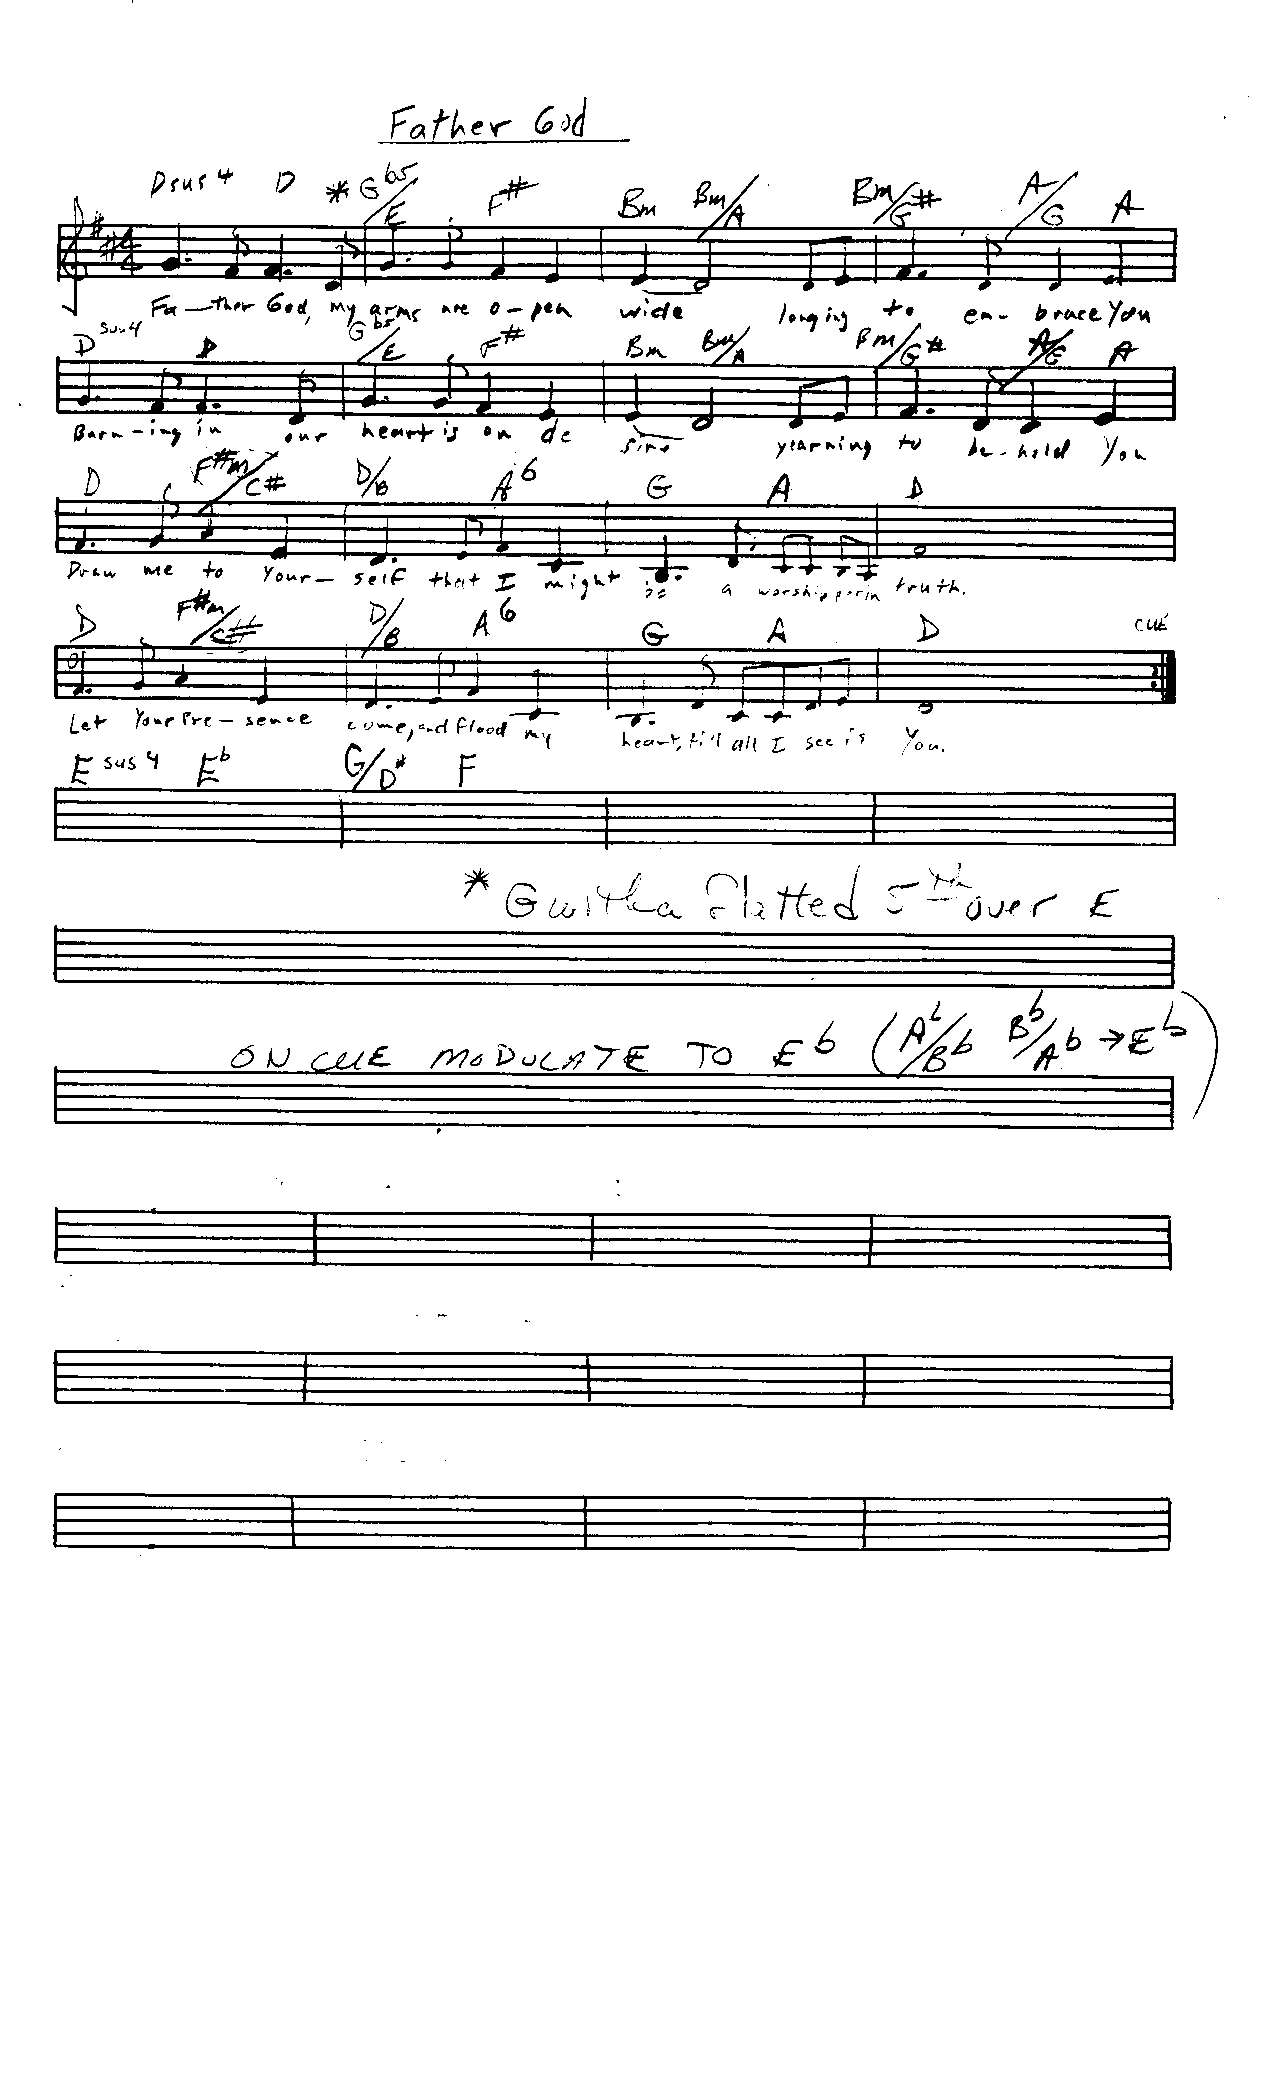 Father God
Dsus4 D * Gb5/E F# Bm Bm/A Bm/G# A/G A
Fa-ther God, my arms are o-pen wide longing to em-brace You
Dsus4 D Gb5/E F# Bm Bm/A Bm/G# A/G A
Burn-ing in our heart is on de sire yearning to be-hold You
D F#m/C# D/B A6 G A D
Draw me to Your-self that I might be a worshipper in truth.
D F#m/C# D/B A6 G A D CUE
Let Your Pre-sence come, and flood my heart, till all I see is You.
Esus4 Eb G/D# F
* G with a flatted 5th over E
ON CUE MODULATE TO Eb (Ab/Bb Bb/Ab → Eb)